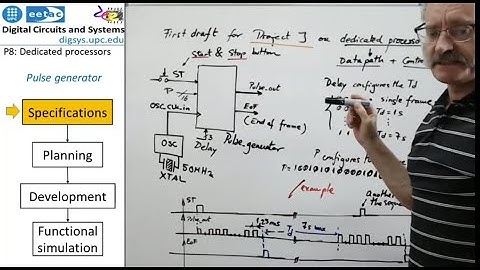 eetac
Digital Circuits and Systems
digsys.upc.edu
P8: Dedicated processors
Pulse generator
Specifications
Planning
Development
Functional
simulation
First draft for Project 3 on dedicated processor
Start & Stop button
Datapath + Control
ST
P
16
OSC_CLK_in
Pulse_out
EoF
(End of frame)
Delay configures the Td
single frame
Td = 1s
1 1 Td = 7s
3
Delay
Pulse_generator
OSC
50MHz
XTAL
P configures
P=1001010
example
ST
Pulse_out
EoF
1,23ms
Td
7s max
another
the seque